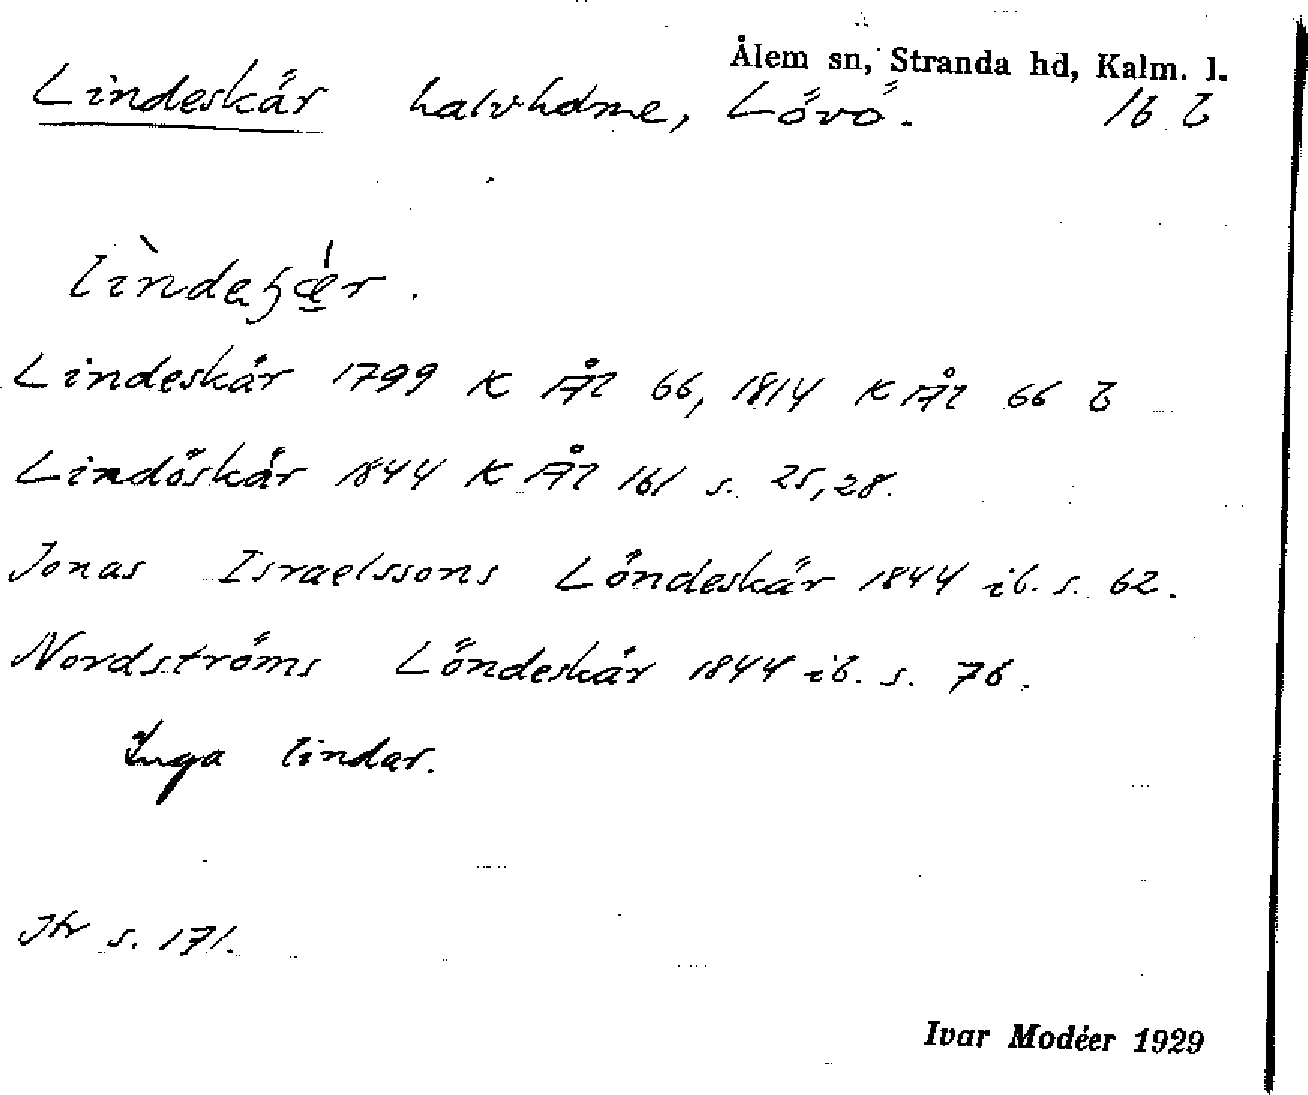 Ålem sn, Stranda hd, Kalm. l.
Lindeskär halvholme, Lövö. 16 b
Lindeskär 1799 K Ål 66, 1814 K Ål 66 b
Lindöskär 1844 K Ål 161 s. 25, 28.
Jonas Israelssons Löndeskär 1844 ib. s. 62.
Nordströms Löndeskär 1844 ib. s. 76.
Inga lindar.
s. 171.
Ivar Modéer 1929